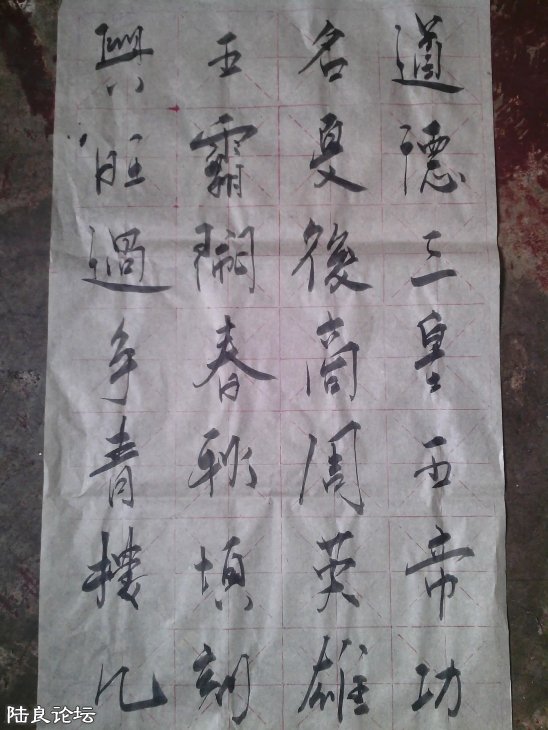 道德三皇五帝功
名夏後商周英雄
五霸鬧春秋頃刻
興旺過手青樓几
陆良论坛